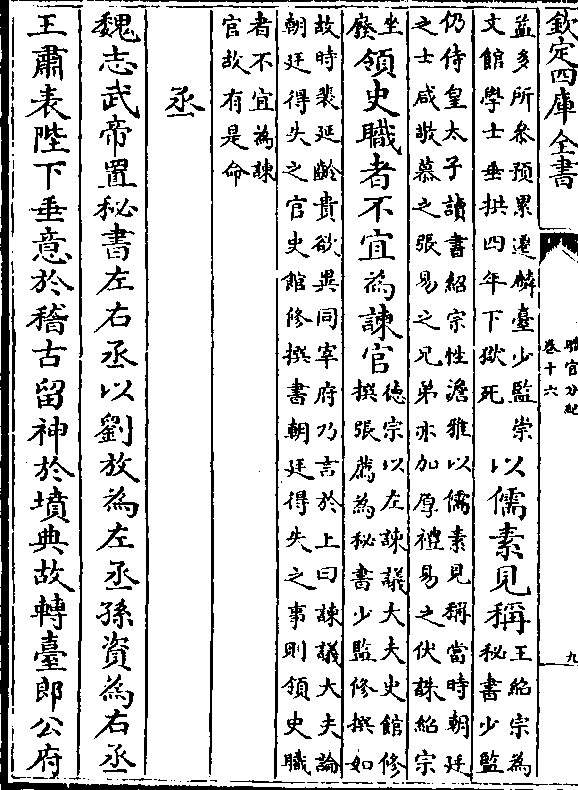 欽定四庫全書
職官分紀
卷十六
九
益多所參預累遷麟臺少監崇
文館學士垂拱四年下獄死
以儒素見稱
王紹宗為
秘書少監
仍侍皇太子讀書紹宗性澹雅以儒素見稱當時朝廷
之士咸敬慕之張易之兄弟亦加厚禮易之伏誅紹宗
坐
廢
領史職者不宜為諫官
德宗以左諫議大夫史館修
撰張薦為秘書少監修撰如
故時裴延齡貴欲異同宰府乃言於上曰諫議大夫論
朝廷得失之官史館修撰書朝廷得失之事則領史職
者不宜為諫
官故有是命
丞
魏志武帝置秘書左右丞以劉放為左丞孫資為右丞
王肅表陛下垂意於稽古留神於墳典故轉臺郎公府